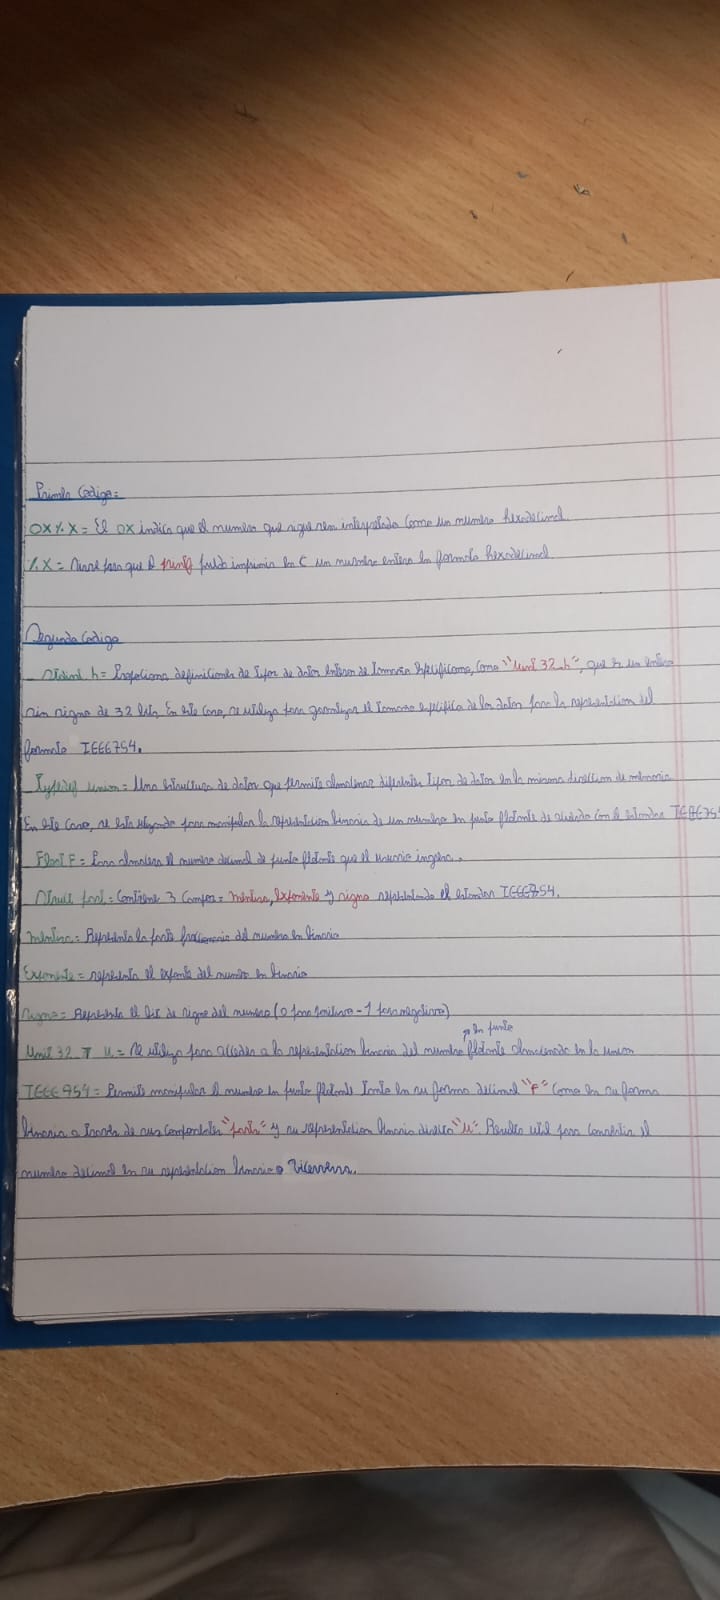 Primer Codigo=
0X%X= El 0X indica que el numero que sigue sera interpretado como un numero hexadecimal
%X= Sirve para que el printf pueda imprimir en C un numero entero en formato hexadecimal
Segundo Codigo
Stdint.h= Proporciona definiciones de tipos de datos enteros de tamaños especificos, como "Uint 32_t", que es un entero
sin signo de 32 bits. En este caso, se utiliza para garantizar el tamaño especifico de los datos para la representacion del
formato IEEE754.
Typedef union= Una estructura de datos que permite almacenar diferentes tipos de datos en la misma direccion de memoria
En este caso, se esta utilizando para manipular la representacion binaria de un numero en punto flotante de acuerdo con el estandar IEEE754
Float F= Para almacenar el numero decimal de punto flotante que el usuario ingresa.
Struct = Contiene 3 campos= mantisa, exponente y signo representando el estandar IEEE754.
Mantisa= Representa la parte fraccionaria del numero en binario
Exponente= representa el exponente del numero en binario
Signo= Representa el bit de signo del numero (0 para positivo - 1 para negativo)
en punto
Uint 32_T u= Se utiliza para acceder a la representacion binaria del numero flotante almacenado en la union
IEEE 754= Permite manipular el numero en punto flotante tanto en su forma decimal "F" como en su forma
binaria a traves de sus componentes "parts" y su representacion binaria directa "u". Resulta util para convertir el
numero decimal en su representacion binaria o Viceversa.